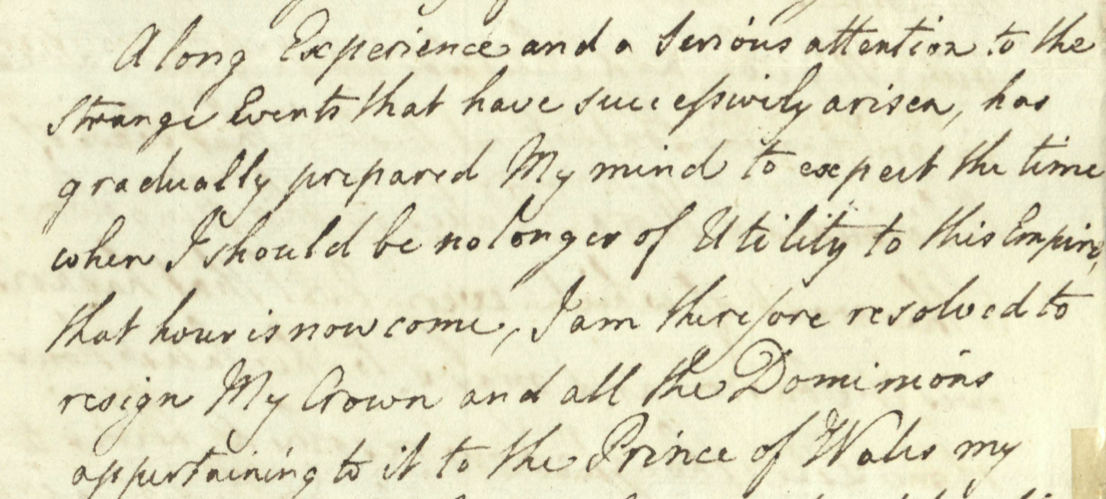 A long Experience and a serious attention to the
Strange Events that have successively arisen, has
gradually prepared My mind to expect the time
when I should be no longer of Utility to this Empire,
that hour is now come, I am therefore resolved to
resign My Crown and all the Dominions
appertaining to it to the Prince of Wales my